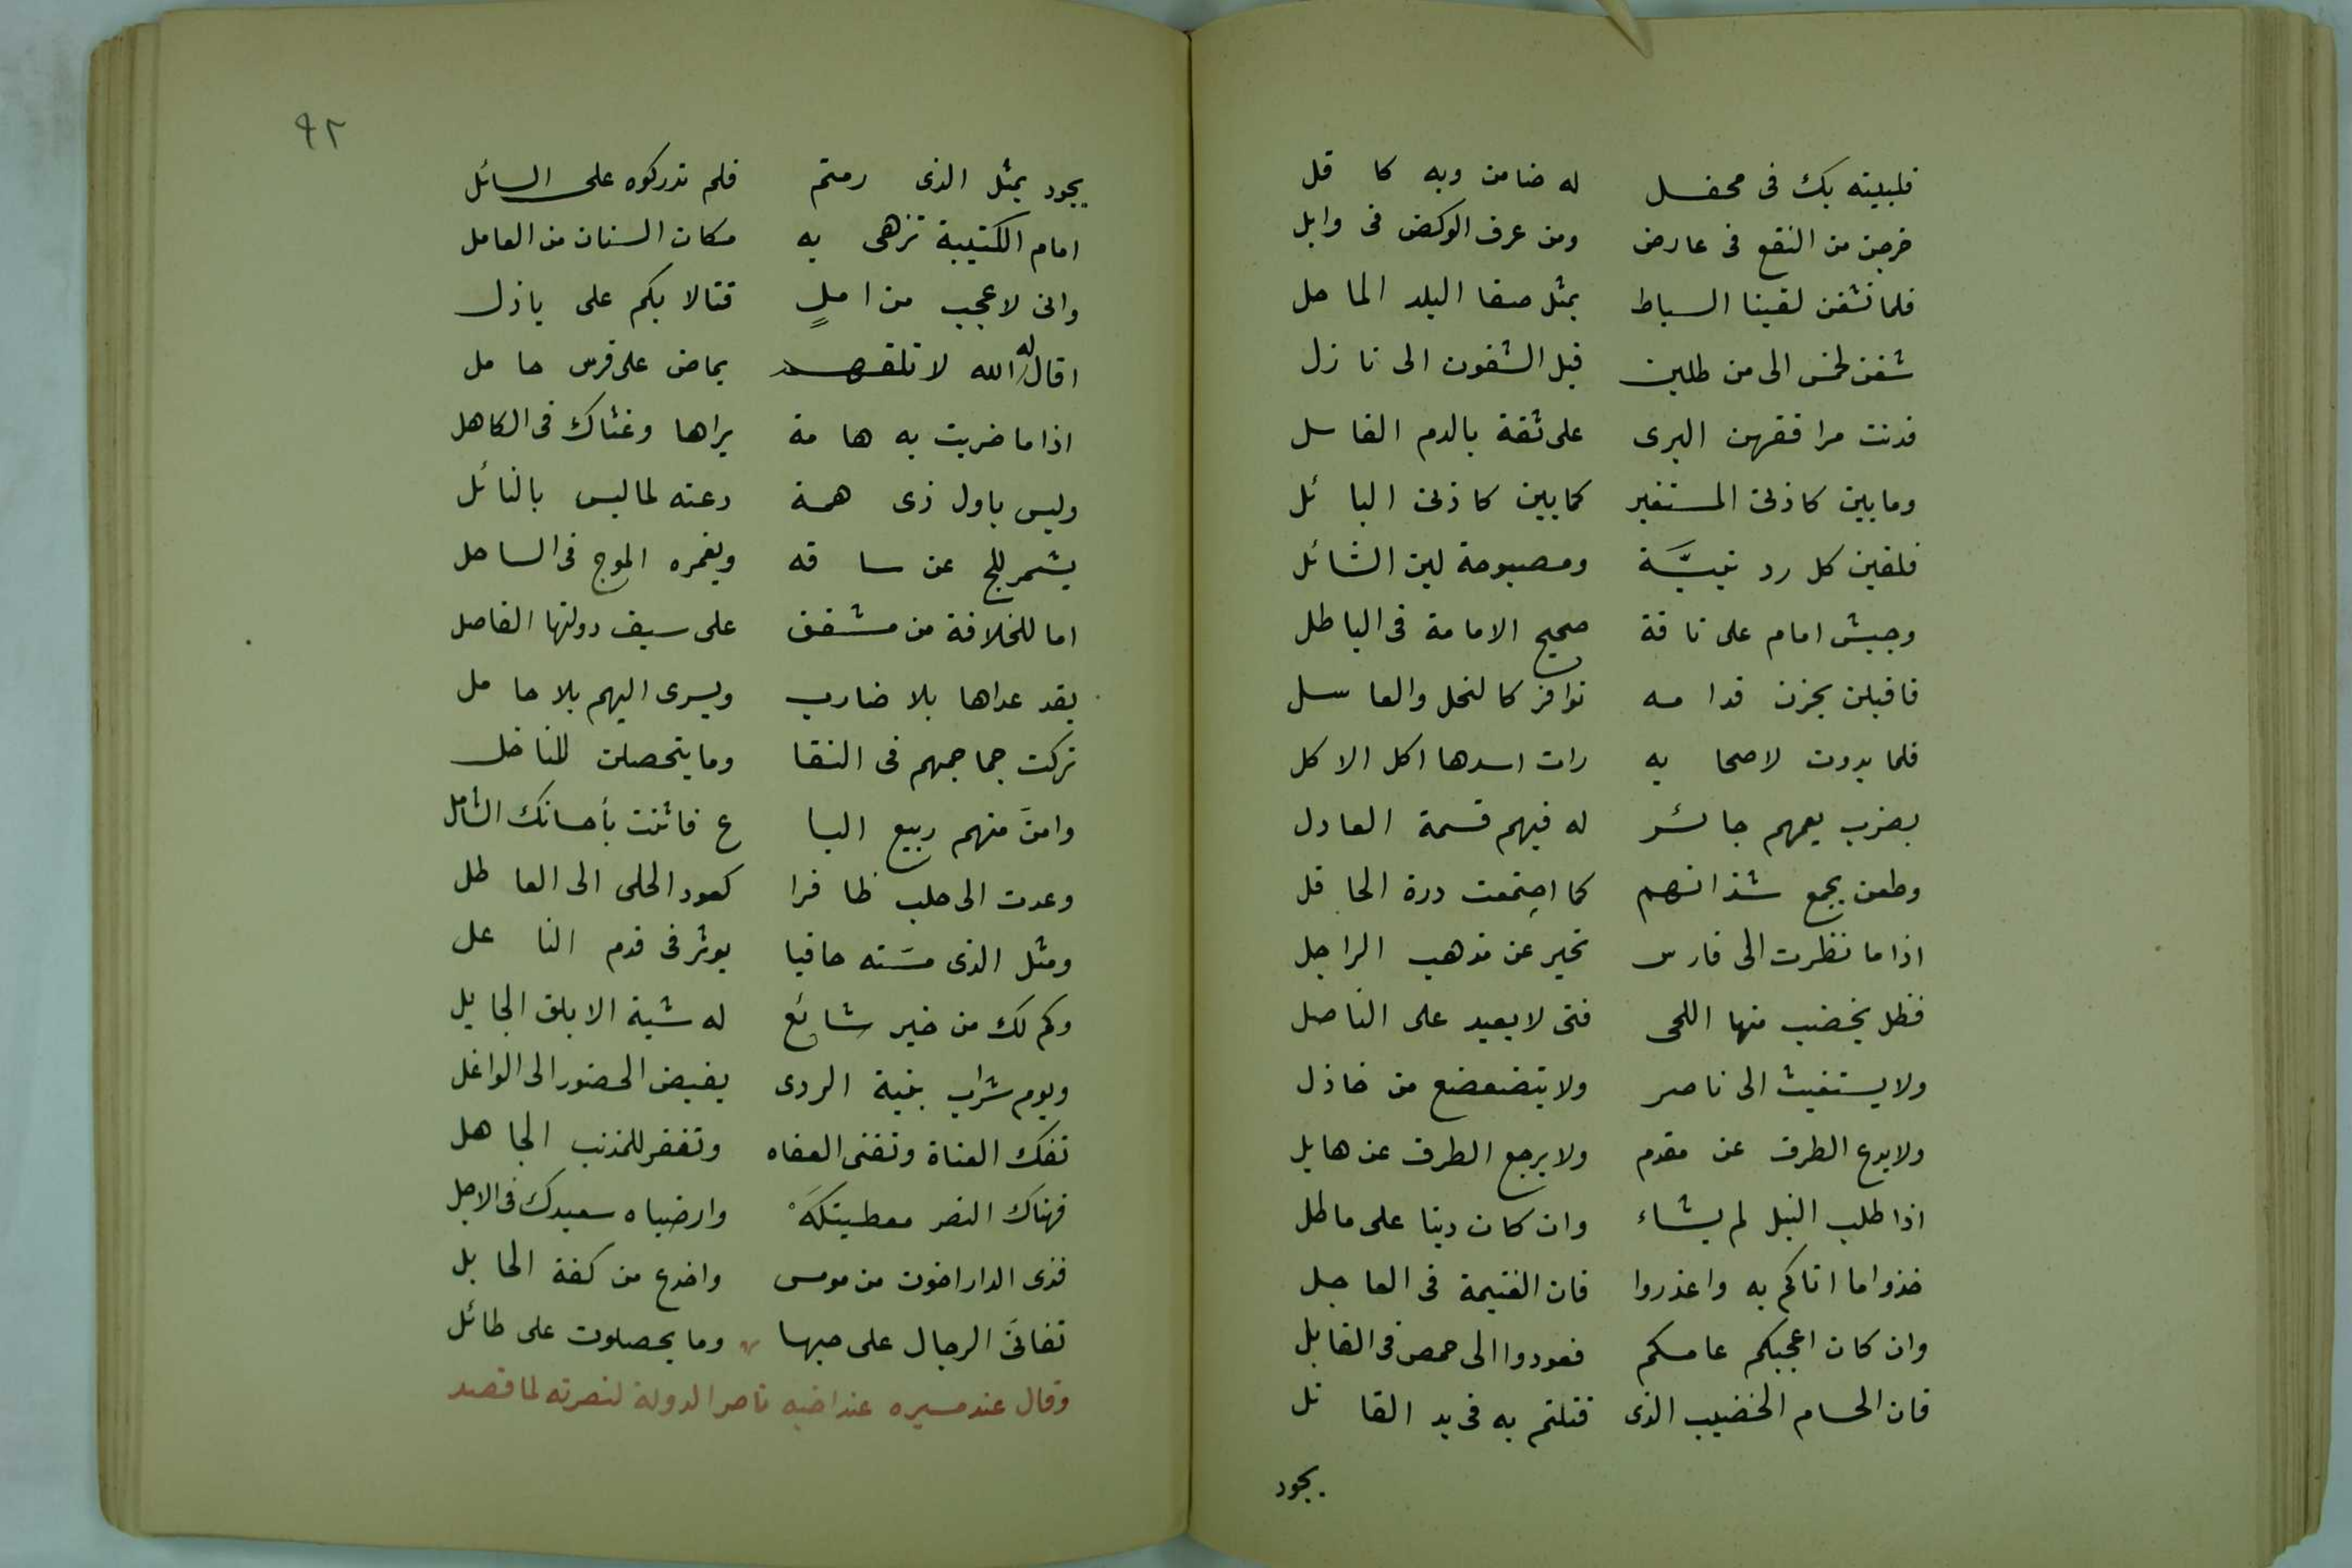 فلبيته بك فى محفل له ضامن وبه كا فل
خرجن من النقع فى عارض ومن عرف الركض فى وابل
فلما نشفن لقينا السياط بمثل صفا البلد الماحل
شفن لخمس الى من طلبن قبل الشفون الى نازل
فدنت مرافقهن البرى على ثقة بالدم الغاسل
وما بين كاذتى المستغير كما بين كاذتى البائل
فلقين كل ردينيَّة ومصبوحة لبن الشائل
وجيش امام على ناقة صحيح الامامة فى الباطل
فاقبلن يحزن قدامه نوافر كالنحل والعاسل
فلما بدوت لاصحابه رات اسدها اكل الاكل
بضرب يعمهم جائر له فيهم قسمة العادل
وطعن يجمع شذانهم كما اجتمعت درة الحافل
اذا ما نظرت الى فارس تحير عن مذهب الراجل
فظل يخضب منها اللحى فتى لا يعيد على الناصل
ولا يستغيث الى ناصر ولا يتضعضع من خاذل
ولا يدع الطرف عن مقدم ولا يرجع الطرف عن هايل
اذا طلب النبل لم يشاء وان كان دينا على ماطل
خذوا ما اتاكم به واعذروا فان الغنيمة فى العاجل
وان كان اعجبكم عامكم فعودوا الى حمص فى القابل
فان الحسام الخضيب الذى قتلتم به فى يد القاتل
يجود
٩٢
يجود بمثل الذى رمتم فلم تدركوه على السائل
امام الكتيبة تزهى به مكان السنان من العامل
وانى لاعجب من املٍ قتالا بكم على بازل
اقال له الله لا تلقهم بماض على فرس حامل
اذا ما ضربت به هامة براها وغناك فى الكاهل
وليس باول ذى همة دعته لما ليس بالنائل
يشمر للج عن ساقه ويغمره الموج فى الساحل
اما للخلافة من مشفق على سيف دولتها الفاصل
يقد عداها بلا ضارب ويسرى اليهم بلا حامل
تركت جماجمهم فى النقا وما يتحصلن للناخل
وامنَ منهم ربيع السبا ع فاثنت بأحسانك الشامل
وعدت الى حلب ظافرا كعود الحلى الى العاطل
ومثل الذى مسَته حافيا يوثر فى قدم الناعل
وكم لك من خير شائع له شية الابلق الجايل
ويوم شراب بنية الردى يغيض الحضور الى الواغل
تفك العناة وتغنى العفاه وتغفر للمذنب الجاهل
فهناك النصر معطيتكهَ وارضاه سعيدك فى الاجل
فذى الدار اخون من مومس واخدع من كفة الحابل
تفانَى الرجال على حبها وما يحصلون على طائل
وقال عند مسيره عند اخيه ناصر الدولة لنصرته لما قصد